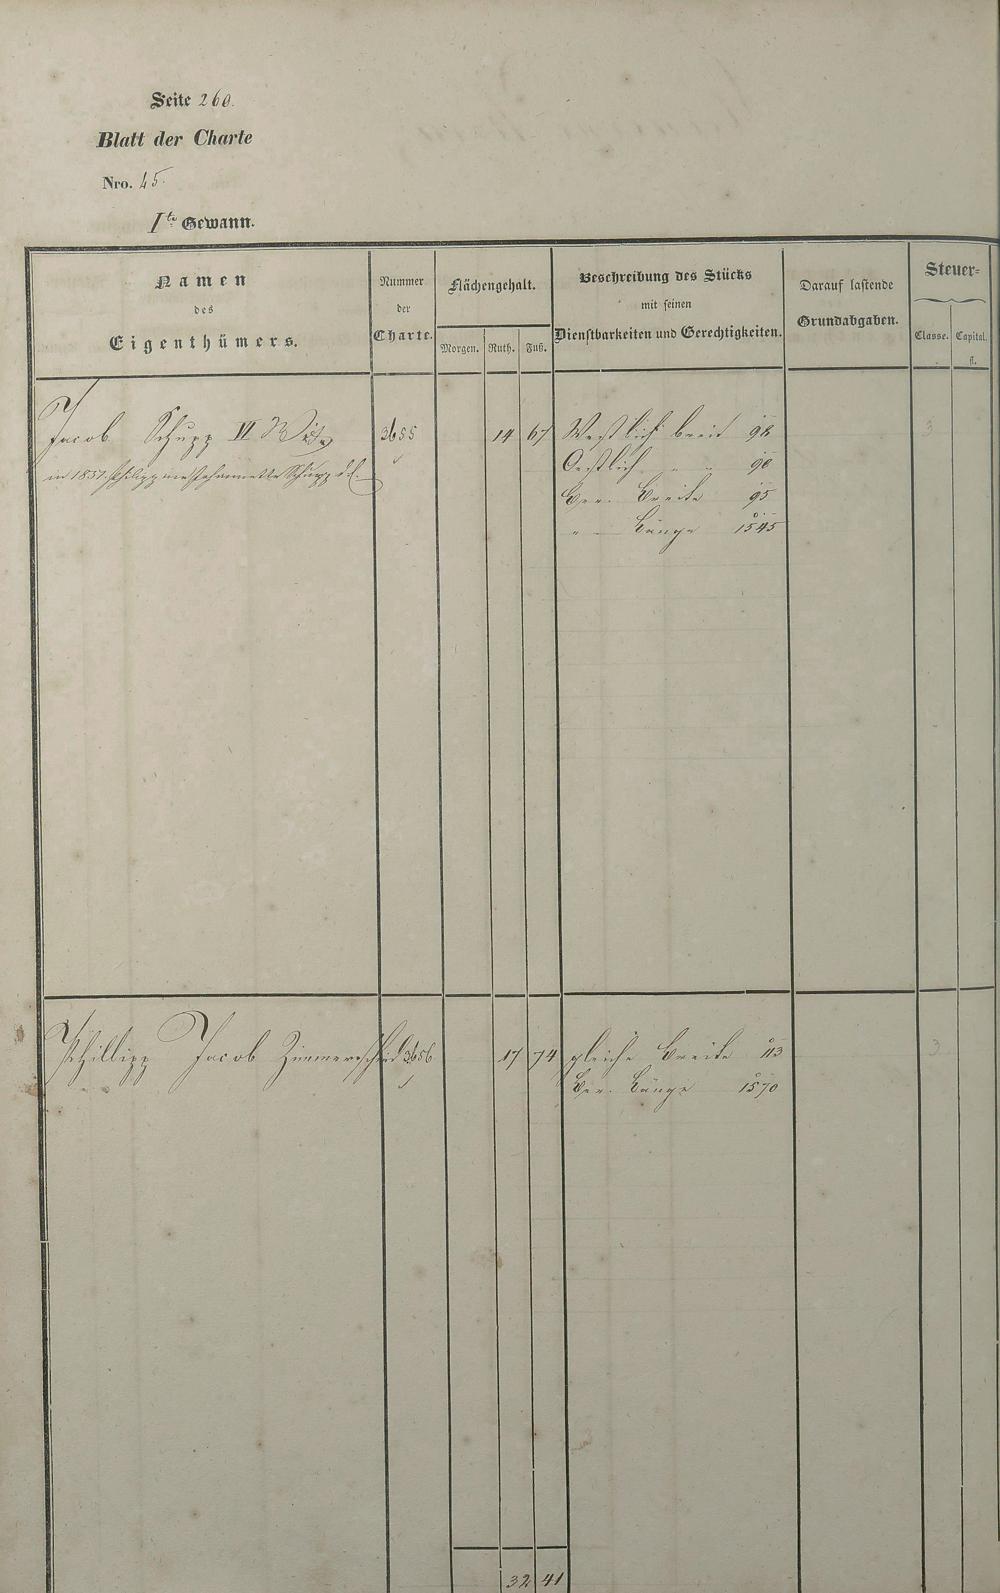 Seite 260.
Blatt der Charte
Nro. 45.
Ite Gewann.
Namen
des
Eigenthümers.
Nummer
der
Charte.
Flächengehalt.
Morgen. Ruth. Fuß.
Beschreibung des Stücks
mit seinen
Dienstbarkeiten und Gerechtigkeiten.
Darauf lastende
Grundabgaben.
Steuer-
Classe. Capital.
fl.
Jacob Schupp VI 3655 14 67 Westlich breit 92 3
in 1837. Philipp Schupp Oestlich " " 98
Ber. Breite 95
" — Länge 1545
Phillipp Jacob Zimmerschied 3656 17 74 gleiche Breite 113 3
Ber. Länge 1570
32 41